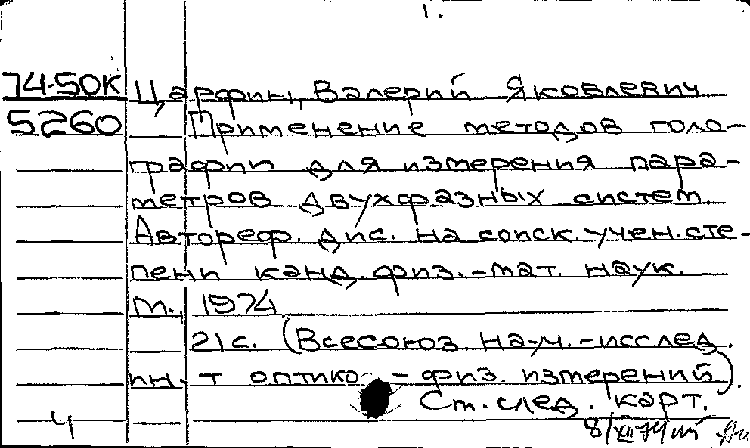 1.
74-50К Царфин, Валерий Яковлевич
5260 Применение методов голо-
графии для измерения пара-
метров двухфазных систем.
Автореф. дис. на соиск. учен. сте-
пени канд. физ.-мат. наук.
М., 1974
21 с. (Всесоюз науч.-исслед.
ин-т оптико-физ. измерений).
Ст. след. карт.
Ч 8/XII 74